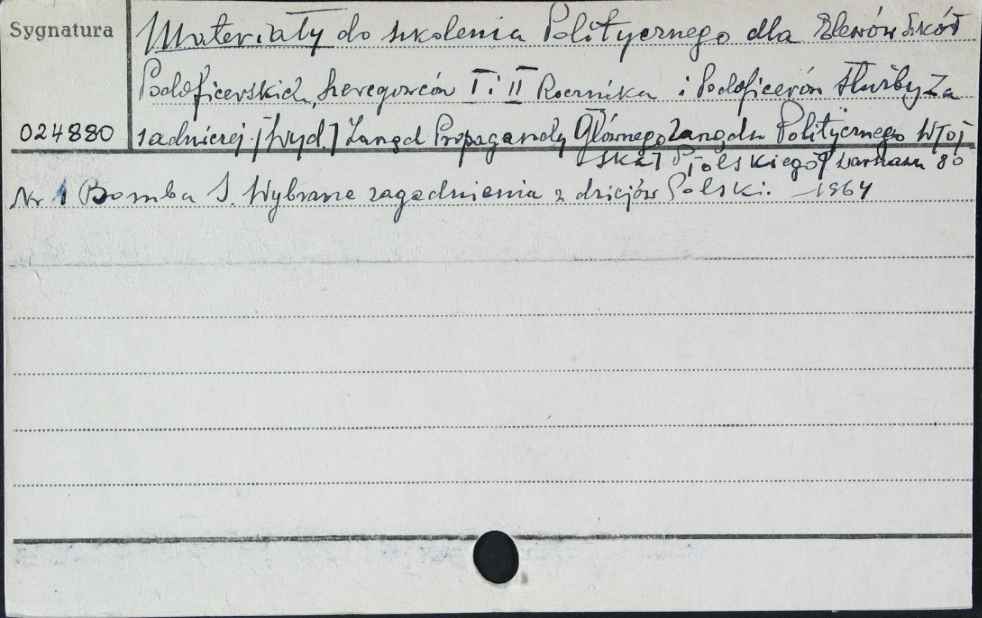 Sygnatura
Materiały do szkolenia Politycznego dla Elewów Szkół
Podoficerskich, szeregowców I i II Rocznika i Podoficerów Służby Za
024880
sadniczej. [Wyd.] Zarząd Propagandy Głównego Zarządu Politycznego Woj
ska Polskiego Warszawa 80
Nr 1 Bomba J. Wybrane zagadnienia z dziejów Polski. 1964